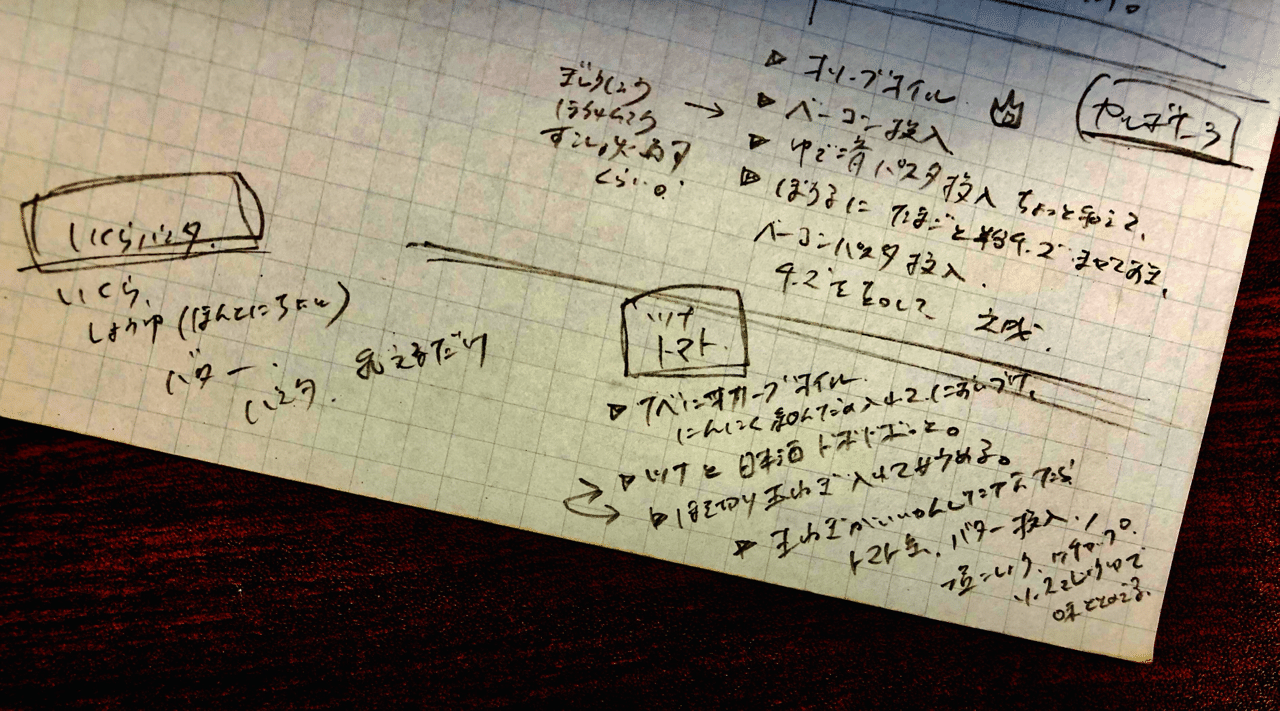 かるぼなーら
▷ オリーブオイル
▷ ベーコン投入
▷ ゆで済パスタ投入 ちょっと和えて、
▷ ぼうるに たまごと粉チーズ まぜておき、
ベーコンパスタ投入.
チーズを足して 完成.
ぎゅうにゅう
ほうれんそう
すこし
くらい。
→
いくらパスタ.
いくら、
しょうゆ (ほんとにちょと)
バター.
パスタ. 和えるだけ
ツナ
トマト.
▷ ナベにオリーブオイル.
にんにく 刻んだの入れて、においづけ、
▷ ツナと日本酒ドボドボっと。
▷ ほそ切り玉ねぎ 入れて
▷ 玉ねぎがいいかんじ
トマト缶、バター投入.
塩こしょう、ケチャップ。
味ととのえる.